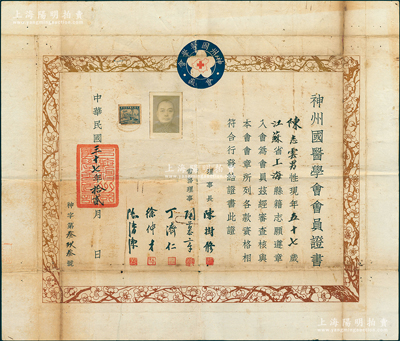 上海陽明拍賣
神州國醫學會
神州國醫學會會員證書
陳志雲男性現年五十七歲
江蘇省上海縣籍志願遵章
入會為會員茲經審查核與
本會會章所列各款資格相
符合行發給證書此證
理事長 陳樹修
常務理事
丁濟仁
徐仲才
中華民國三十七年拾貳月 日
神字第叁玖叁號
上海陽明拍賣